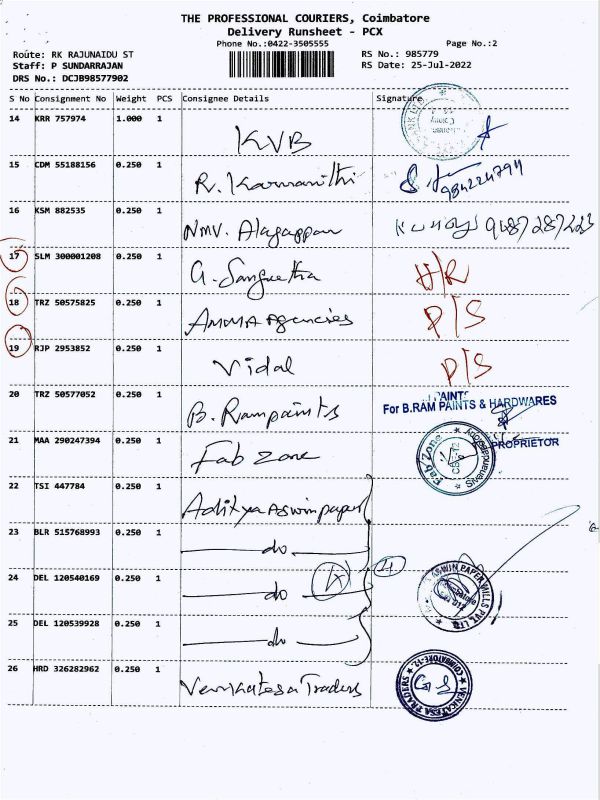 THE PROFESSIONAL COURIERS, Coimbatore
Delivery Runsheet - PCX
Phone No.:0422-3505555 Page No.:2
Route: RK RAJUNAIDU ST RS No.: 985779
Staff: P SUNDARRAJAN RS Date: 25-Jul-2022
DRS No.: DCJB98577902
S No Consignment No Weight PCS Consignee Details Signature
14 KRR 757974 1.000 1 KVB
15 CDM 55188156 0.250 1 R. Karunanithi
16 KSM 882535 0.250 1 NMV. Alagappan
17 SLM 300001208 0.250 1 G. Sangeetha
18 TRZ 50575825 0.250 1 AMMA Agencies P/S
19 RJP 2953852 0.250 1 Vidal P/S
20 TRZ 50577052 0.250 1 B. Rampaints
For B.RAM PAINTS & HARDWARES
PROPRIETOR
21 MAA 290247394 0.250 1 Fab Zone Fab Zone
22 TSI 447784 0.250 1 Aditya Aswin paper
23 BLR 515768993 0.250 1 do
24 DEL 120540169 0.250 1 do 4 ASWIN PAPER MILLS PVT. LTD.
25 DEL 120539928 0.250 1 do
26 HRD 326282962 0.250 1 Venkatesa Traders VENKATESA TRADERS COIMBATORE-12